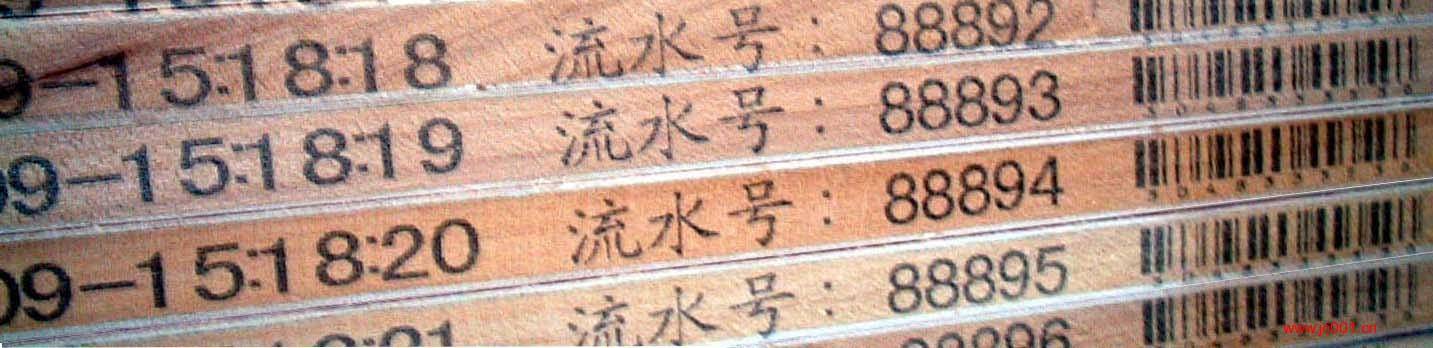 9-15:18:18 流水号：88892
09-15:18:19 流水号：88893
09-15:18:20 流水号：88894
流水号：88895
88896
www.jc001.cn